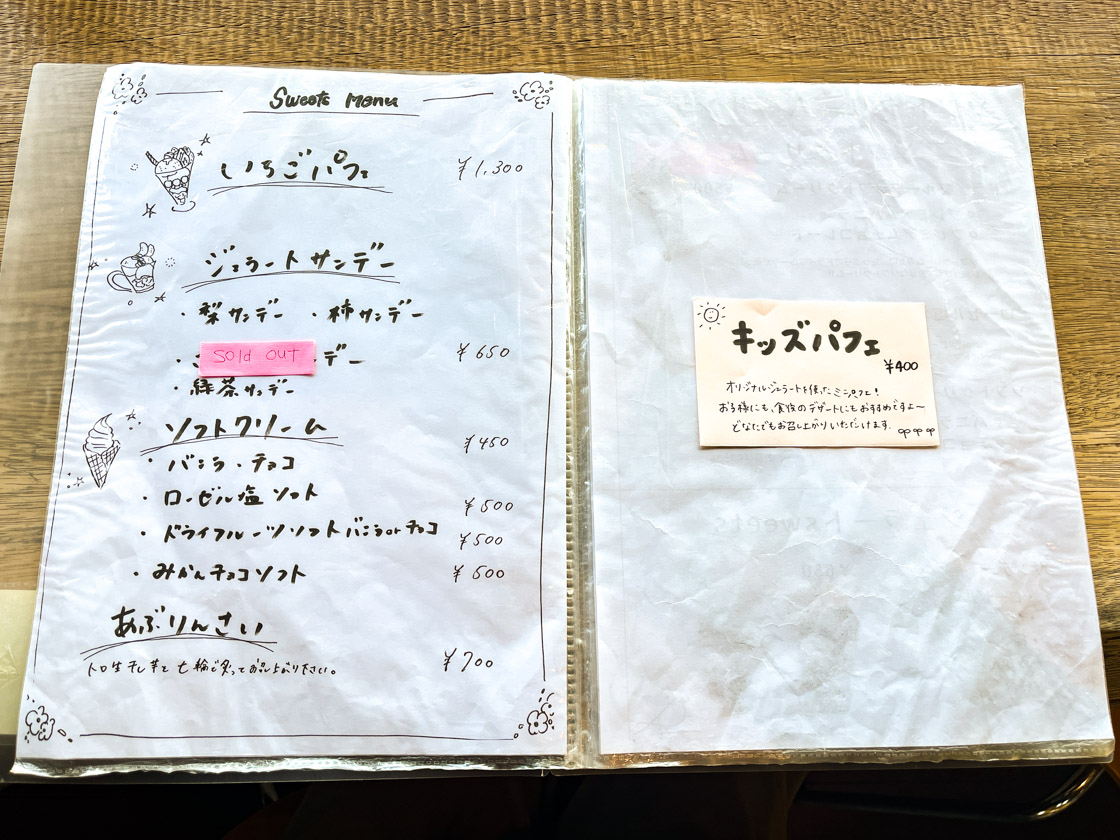 Sweets Menu
いちごパフェ ¥1,300
ジェラートサンデー
・梨サンデー ・柿サンデー
・ Sold out デー ¥650
・緑茶サンデー
ソフトクリーム ¥450
・バニラ・チョコ
・ローゼル塩ソフト ¥500
・ドライフルーツソフトバニラorチョコ ¥500
・みかんチョコソフト ¥500
あぶりんさい
トロ生干し芋を七輪で炙ってお召し上がり下さい。 ¥700
キッズパフェ
¥400
オリジナルジェラートを使ったミニパフェ!
お子様にも、食後のデザートにもおすすめですよ〜
どなたでもお召し上がりいただけます。